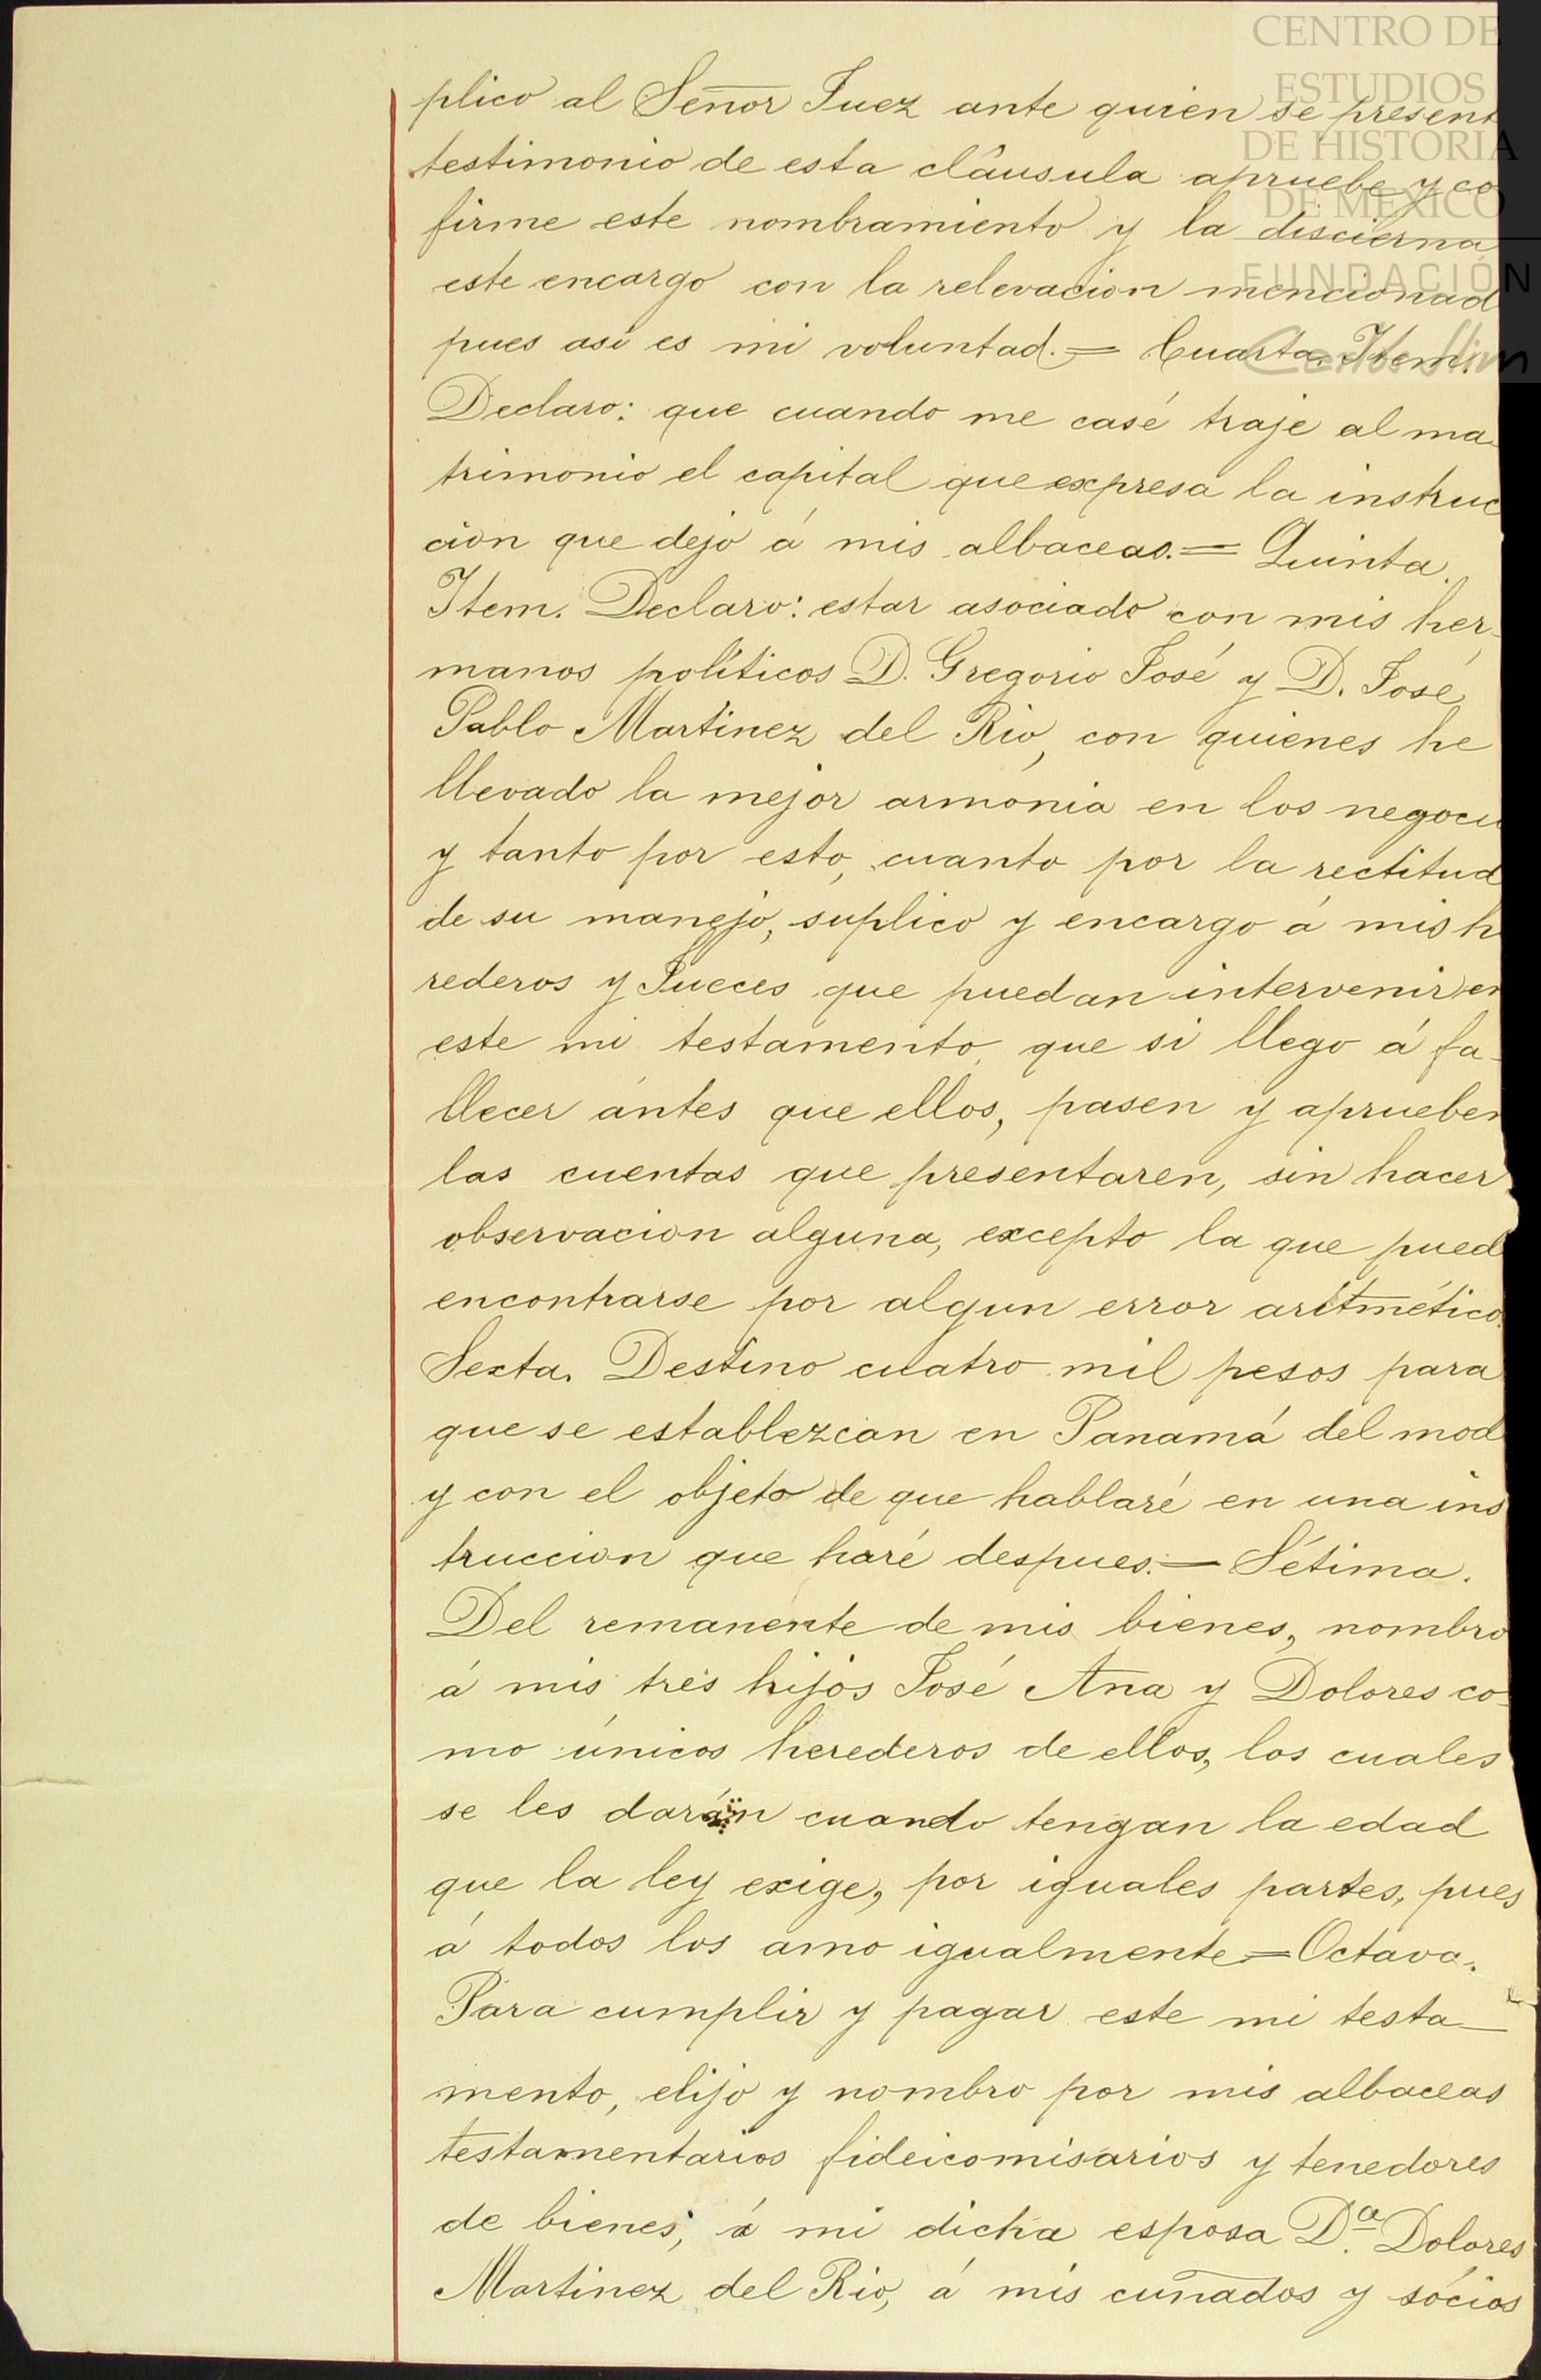 CENTRO DE
ESTUDIOS
DE HISTORIA
DE MÉXICO
FUNDACIÓN
Carlos Slim
plico al Señor Juez ante quien se present
testimonio de esta cláusula apruebe y co
firme este nombramiento y la discierna
este encargo con la relevacion mencionad
pues asi es mi voluntad.= Cuarta. Item.
Declaro: que cuando me casé traje al ma-
trimonio el capital que expresa la instruc
cion que dejo á mis albaceas.= Quinta.
Item. Declaro: estar asociado con mis her-
manos políticos D. Gregorio José y D. José
Pablo Martinez del Rio, con quienes he
llevado la mejor armonia en los negoci
y tanto por esto, cuanto por la rectitud
de su manejo, suplico y encargo á mis h
rederos y Jueces que puedan intervenir en
este mi testamento, que si llego á fa-
llecer ántes que ellos, pasen y aprueben
las cuentas que presentaren, sin hacer
observacion alguna, excepto la que pued
encontrarse por algun error aritmético.
Sexta. Destino cuatro mil pesos para
que se establezcan en Panamá del mod
y con el objeto de que hablaré en una ins
truccion que haré despues.= Sétima.
Del remanente de mis bienes, nombro
á mis tres hijos José Ana y Dolores co-
mo únicos herederos de ellos, los cuales
se les darán cuando tengan la edad
que la ley exige, por iguales partes, pues
á todos los amo igualmente.= Octava.
Para cumplir y pagar este mi testa-
mento, elijo y nombro por mis albaceas
testamentarios fideicomisarios y tenedores
de bienes, á mi dicha esposa D.ª Dolores
Martinez del Rio, á mis cuñados y sócios